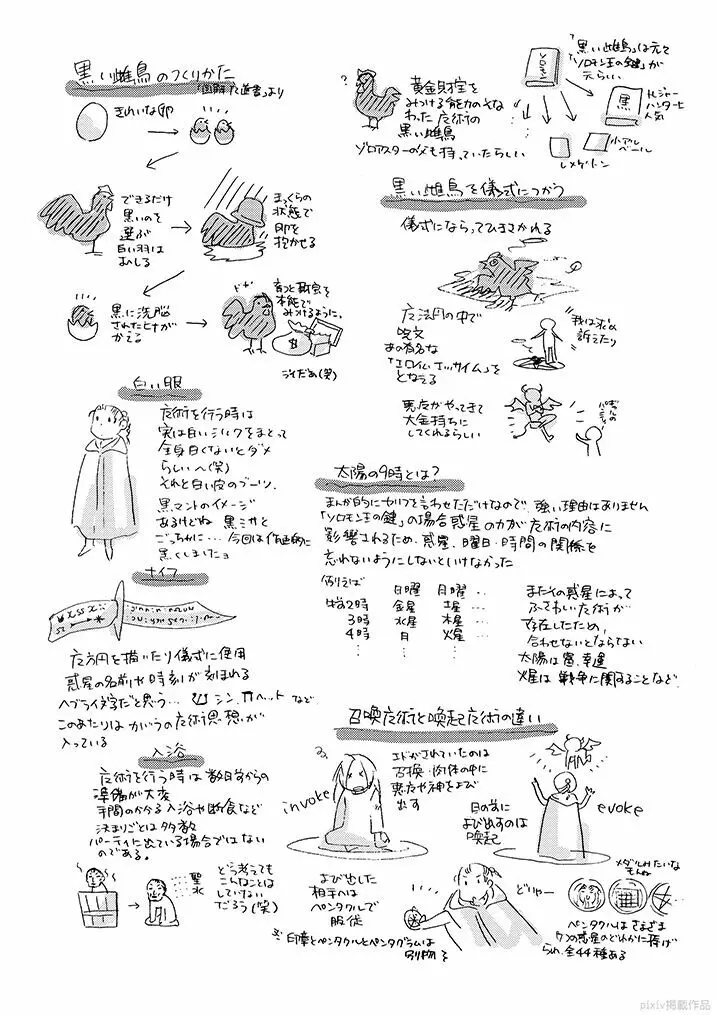 黒い雌鳥のつくりかた
きれいな卵
できるだけ
黒いのを
選ぶ
白い羽は
まっくらの
状態で
卵を
抱かせる
黒に洗脳
されたヒナが
かえる
本能で
みつけるように、
黄金財宝を
みつける能力のそな
わった魔術の
黒い雌鳥
ゾロアスターの父も持っていたらしい
「黒い雌鳥」は元で
「ソロモン王の鍵」が
元らしい
ソロモン
黒
トレジャー
ハンターに
人気
小アル
ベール
レメゲトン
黒い雌鳥を儀式につかう
儀式にならってひきさかれる
魔法円の中で
呪文
あの有名な
「エロイム エッサイム」を
となえる
我は求め
訴えたり
悪魔がやってきて
大金持ちに
してくれるらしい
白い服
魔術を行う時は
実は白いシルクをまとって
全身白くないとダメ
らしいへ(笑)
それと白い皮のブーツ。
黒マントのイメージ
あるけどね 黒ミサと
ごっちゃに… 今回は作画的に
黒くしましたヨ
太陽の9時とは?
まんが的にセリフを言わせただけなので、強い理由はありません
「ソロモン王の鍵」の場合惑星の力が魔術の内容に
影響されるため、惑星、曜日・時間の関係を
忘れないようにしないといけなかった
例えば 日曜 月曜 …
2時 金星 土星 …
3時 水星 木星 …
4時 月 火星 …
またその惑星によって
ふさわしい魔術が
存在したため、
合わせないとならない
太陽は富、幸運
火星は戦争に関することなど。
ナイフ
魔方円を描いたり儀式に使用
惑星の名前や時刻が刻まれる
ヘブライ文字だと思う… シン、ヘット など
このあたりはカバラの魔術思想が
入っている
入浴
魔術を行う時は数日前からの
準備が大変
手間のかかる入浴や断食など
決まりごとは多数
パーティに出ている場合ではない
のである。
聖
水
どう考えても
こんなことは
していない
だろう(笑)
召喚魔術と喚起魔術の違い
invoke
エドがされていたのは
召喚・肉体の中に
悪魔や神をよび
出す
目の前に
よび出すのは
喚起
evoke
よび出した
相手へは
ペンタクルで
服従
※印章とペンタクルとペンタグラムは
別物
どりゃー
メダルみたいな
もんね
ペンタクルはさまざま
7つの惑星のどれかに捧げ
られ、全44種ある
pixiv掲載作品